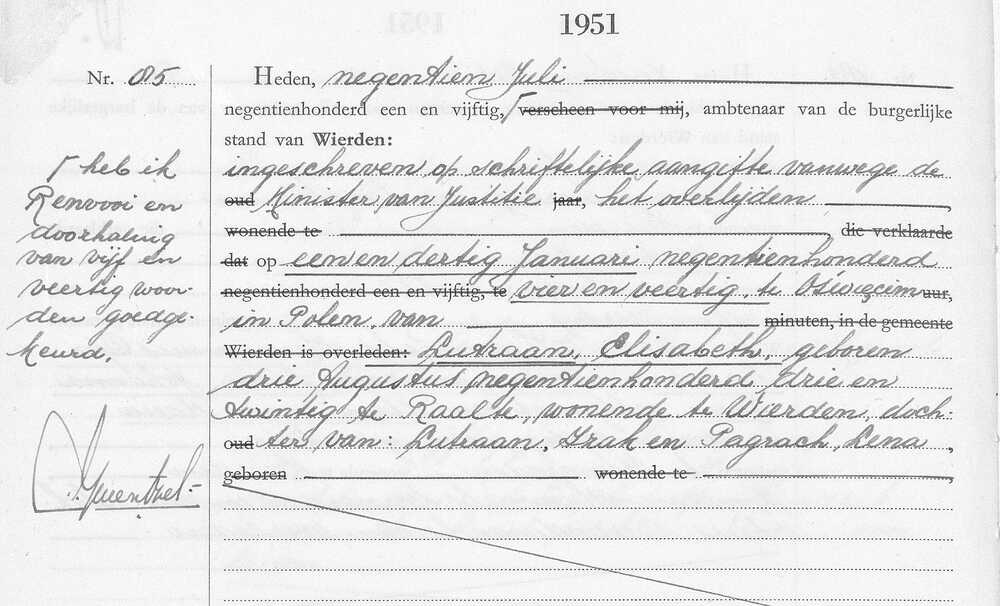 1951
Nr. 85
Heden, negentien Juli
negentienhonderd een en vijftig, ꟾ verscheen voor mij, ambtenaar van de burgerlijke
stand van Wierden:
ingeschreven op schriftelijke aangifte vanwege de
oud Minister van Justitie jaar, het overlijden ,
wonende te , die verklaarde
dat op een en dertig Januari negentienhonderd
negentienhonderd een en vijftig, te vier en veertig, te Oświęcim uur,
in Polen, van minuten, in de gemeente
Wierden is overleden: Lutraan, Elisabeth, geboren
drie Augustus negentienhonderd drie en
twintig te Raalte, wonende te Wierden, doch-
oud ter van: Lutraan, Izak en Pagrach, Lena ,
geboren wonende te
ꟾ heb ik
Renvooi en
doorhaling
van vijf en
veertig woor-
den goedge-
keurd.